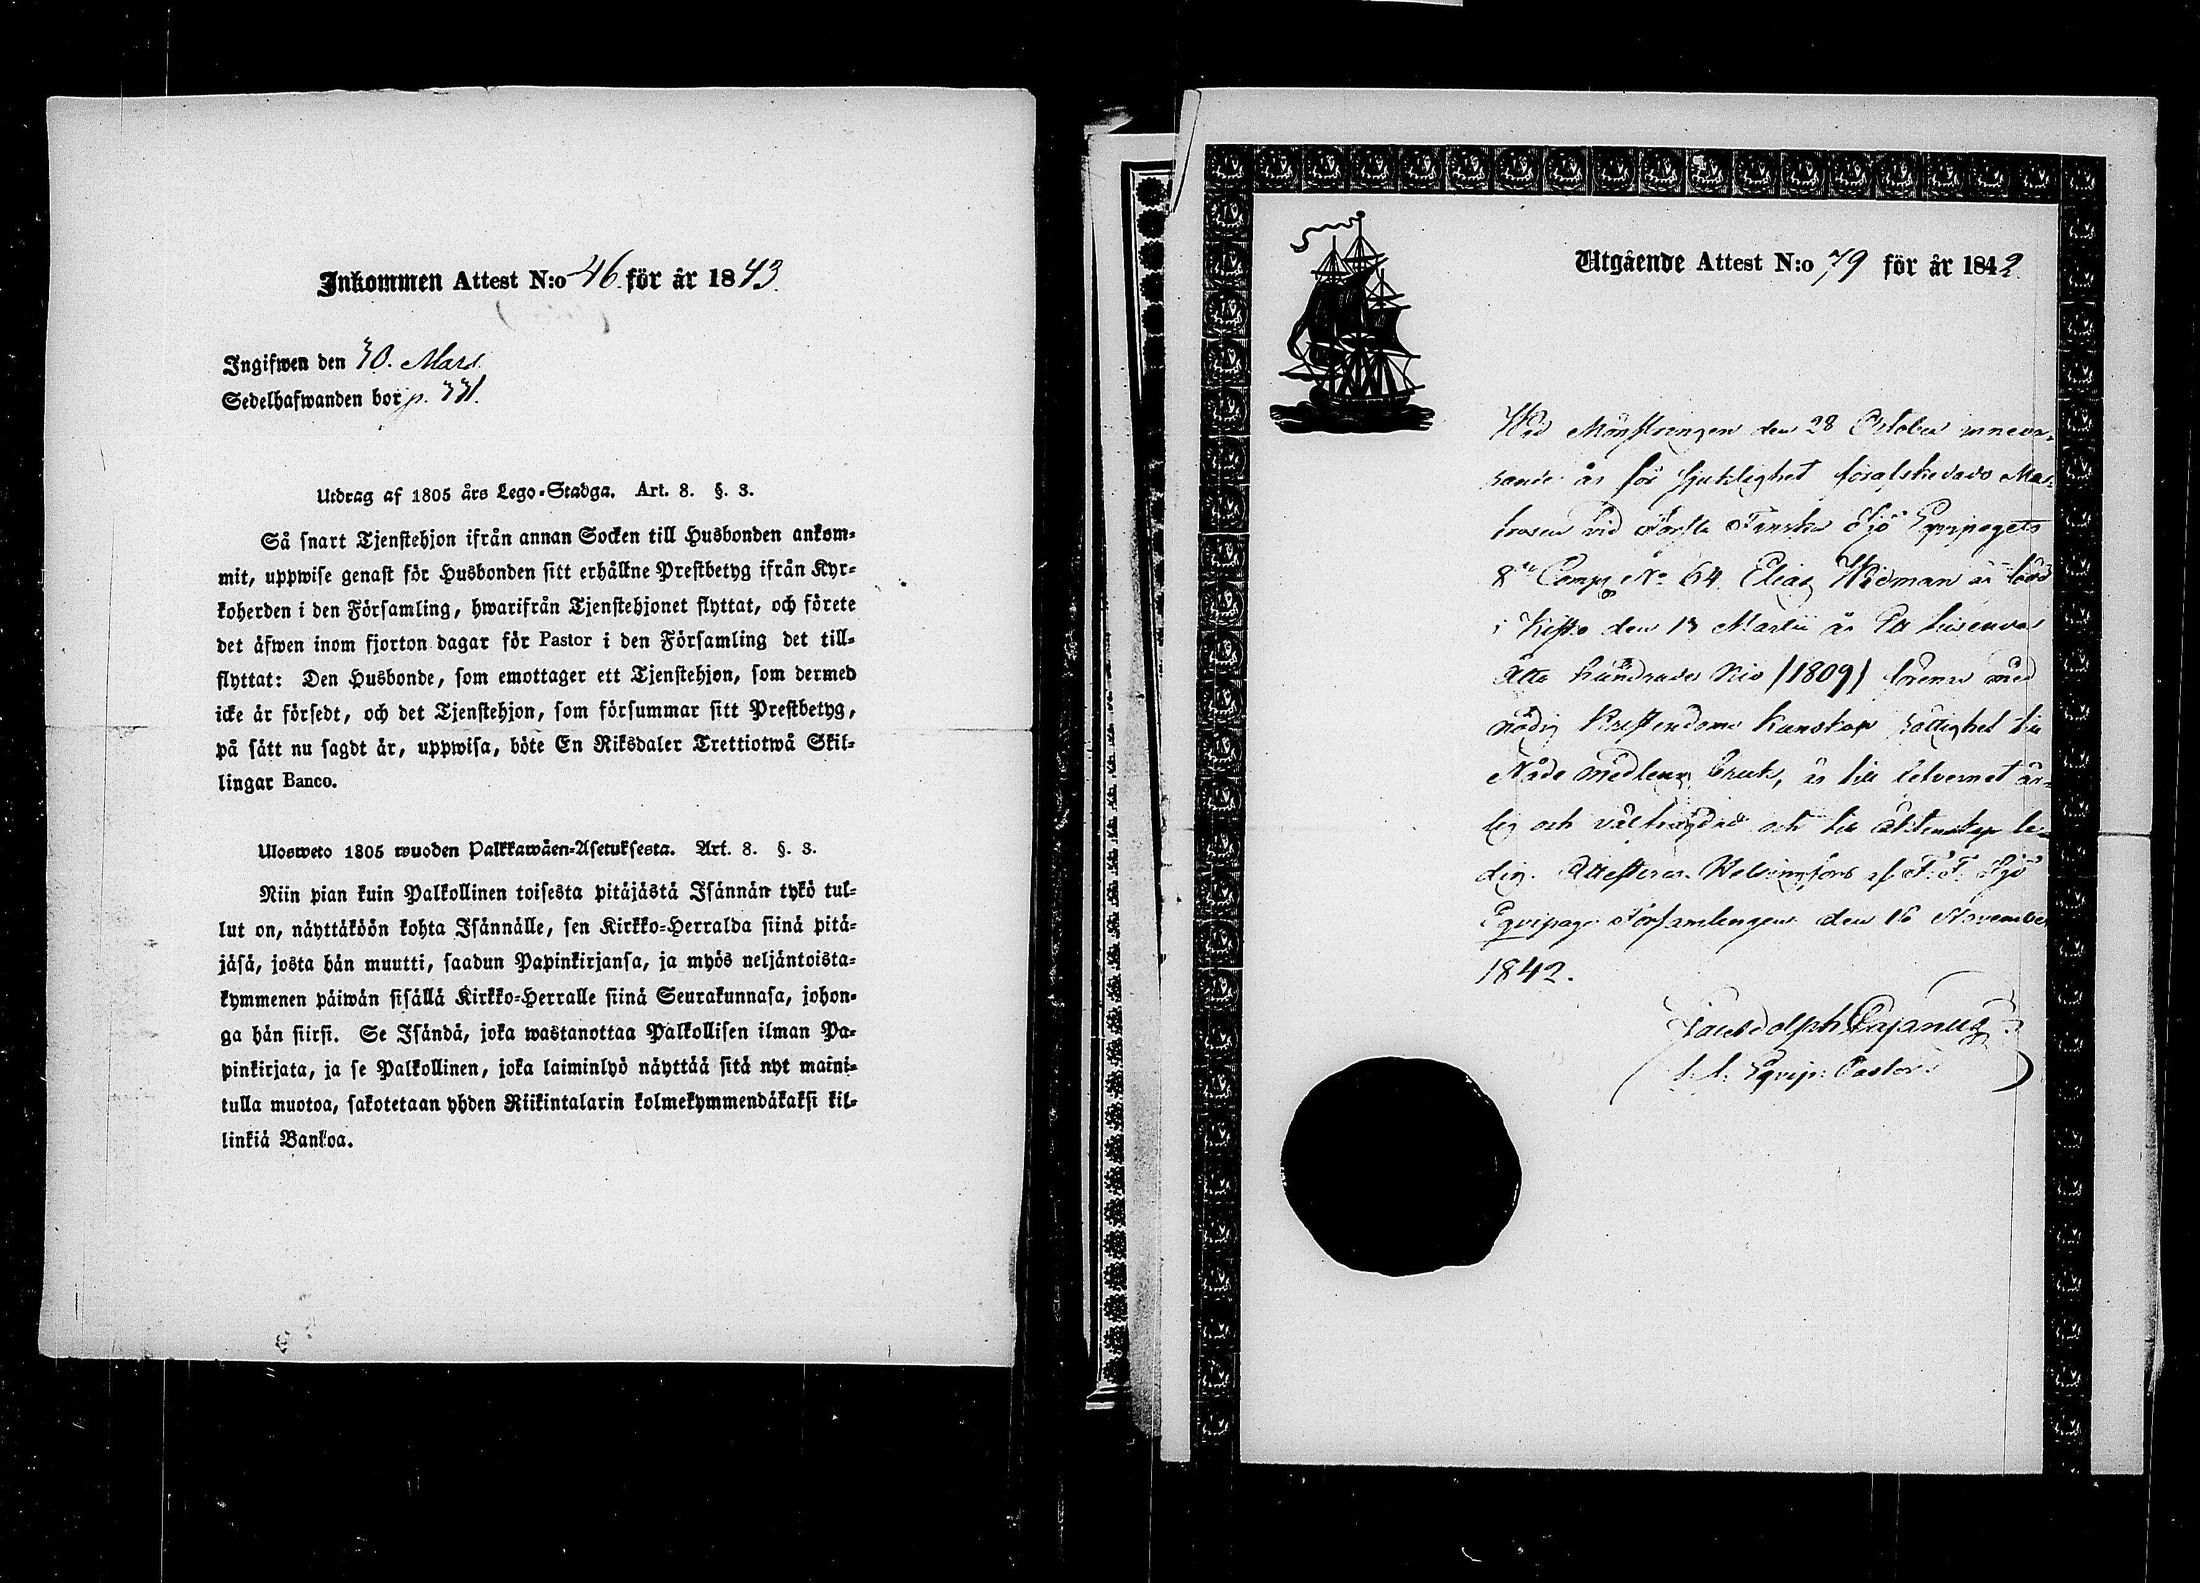 Inkommen Attest N:o 46. för år 1843.
Ingifwen den 30. Mars.
Sedelhafwanden bor p. 331.
Utdrag af 1805 års Lego-Stadga. Art. 8. §. 3.
Så snart Tjenstehjon ifrån annan Socken till Husbonden ankom-
mit, uppwise genast för Husbonden sitt erhållne Prestbetyg ifrån Kyr-
koherden i den Församling, hwarifrån Tjenstehjonet flyttat, och förete
det äfwen inom fjorton dagar för Pastor i den Församling det till-
flyttat: Den Husbonde, som emottager ett Tjenstehjon, som dermed
icke är försedt, och det Tjenstehjon, som försummar sitt Prestbetyg,
på sätt nu sagdt är, uppwisa, böte En Riksdaler Trettiotwå Skil-
lingar Banco.
Ulosweto 1805 wuoden Palkkawäen-Asetuksesta. Art. 8. §. 3.
Niin pian kuin Palkollinen toisesta pitäjästä Isännän tykö tul-
lut on, näyttäköön kohta Isännälle, sen Kirkko-Herralda siinä pitä-
jäsä, josta hän muutti, saadun Papinkirjansa, ja myös neljäntoista-
kymmenen päiwän sisällä Kirkko-Herralle siinä Seurakunnasa, johon-
ga hän siirsi. Se Isändä, joka wastanottaa Palkollisen ilman Pa-
pinkirjata, ja se Palkollinen, joka laiminlyö näyttää sitä nyt maini-
tulla muotoa, sakotetaan yhden Riikintalarin kolmekymmendäkaksi kil-
linkiä Bankoa.
Utgående Attest N:o 79 för år 1842
Wid Mönstringen den 28 October inneva-
rande år för sjuklighet förafskedade Mat-
rosen vid Första Finska Sjö Equipagets
8de Comp No 64 Elias Widman är född
i den 13 Martii år Ett tusende
Åtta hundrade Nio (1809) med
nödig Christendoms kunskap
Nåde medlens bruk, är till lefvernet är-
lig och välfrägdad och till äktenskap le-
dig. Attesteras. Helsingfors af F. F. Sjö
Equipage Församlingen den 16 November
1842.
Cajanus
Equip: Pastor